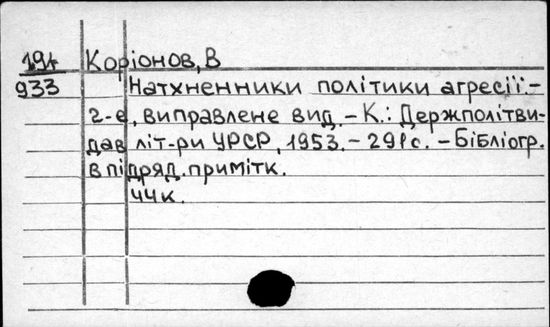 19४ Коріонов, В
933 Натхненники політики агресії.-
2-е, виправлене вид. - К.: Держполітви-
дав літ-ри УРСР, 1953. - 291 с. - Бібліогр.
в підряд. примітк.
44к.